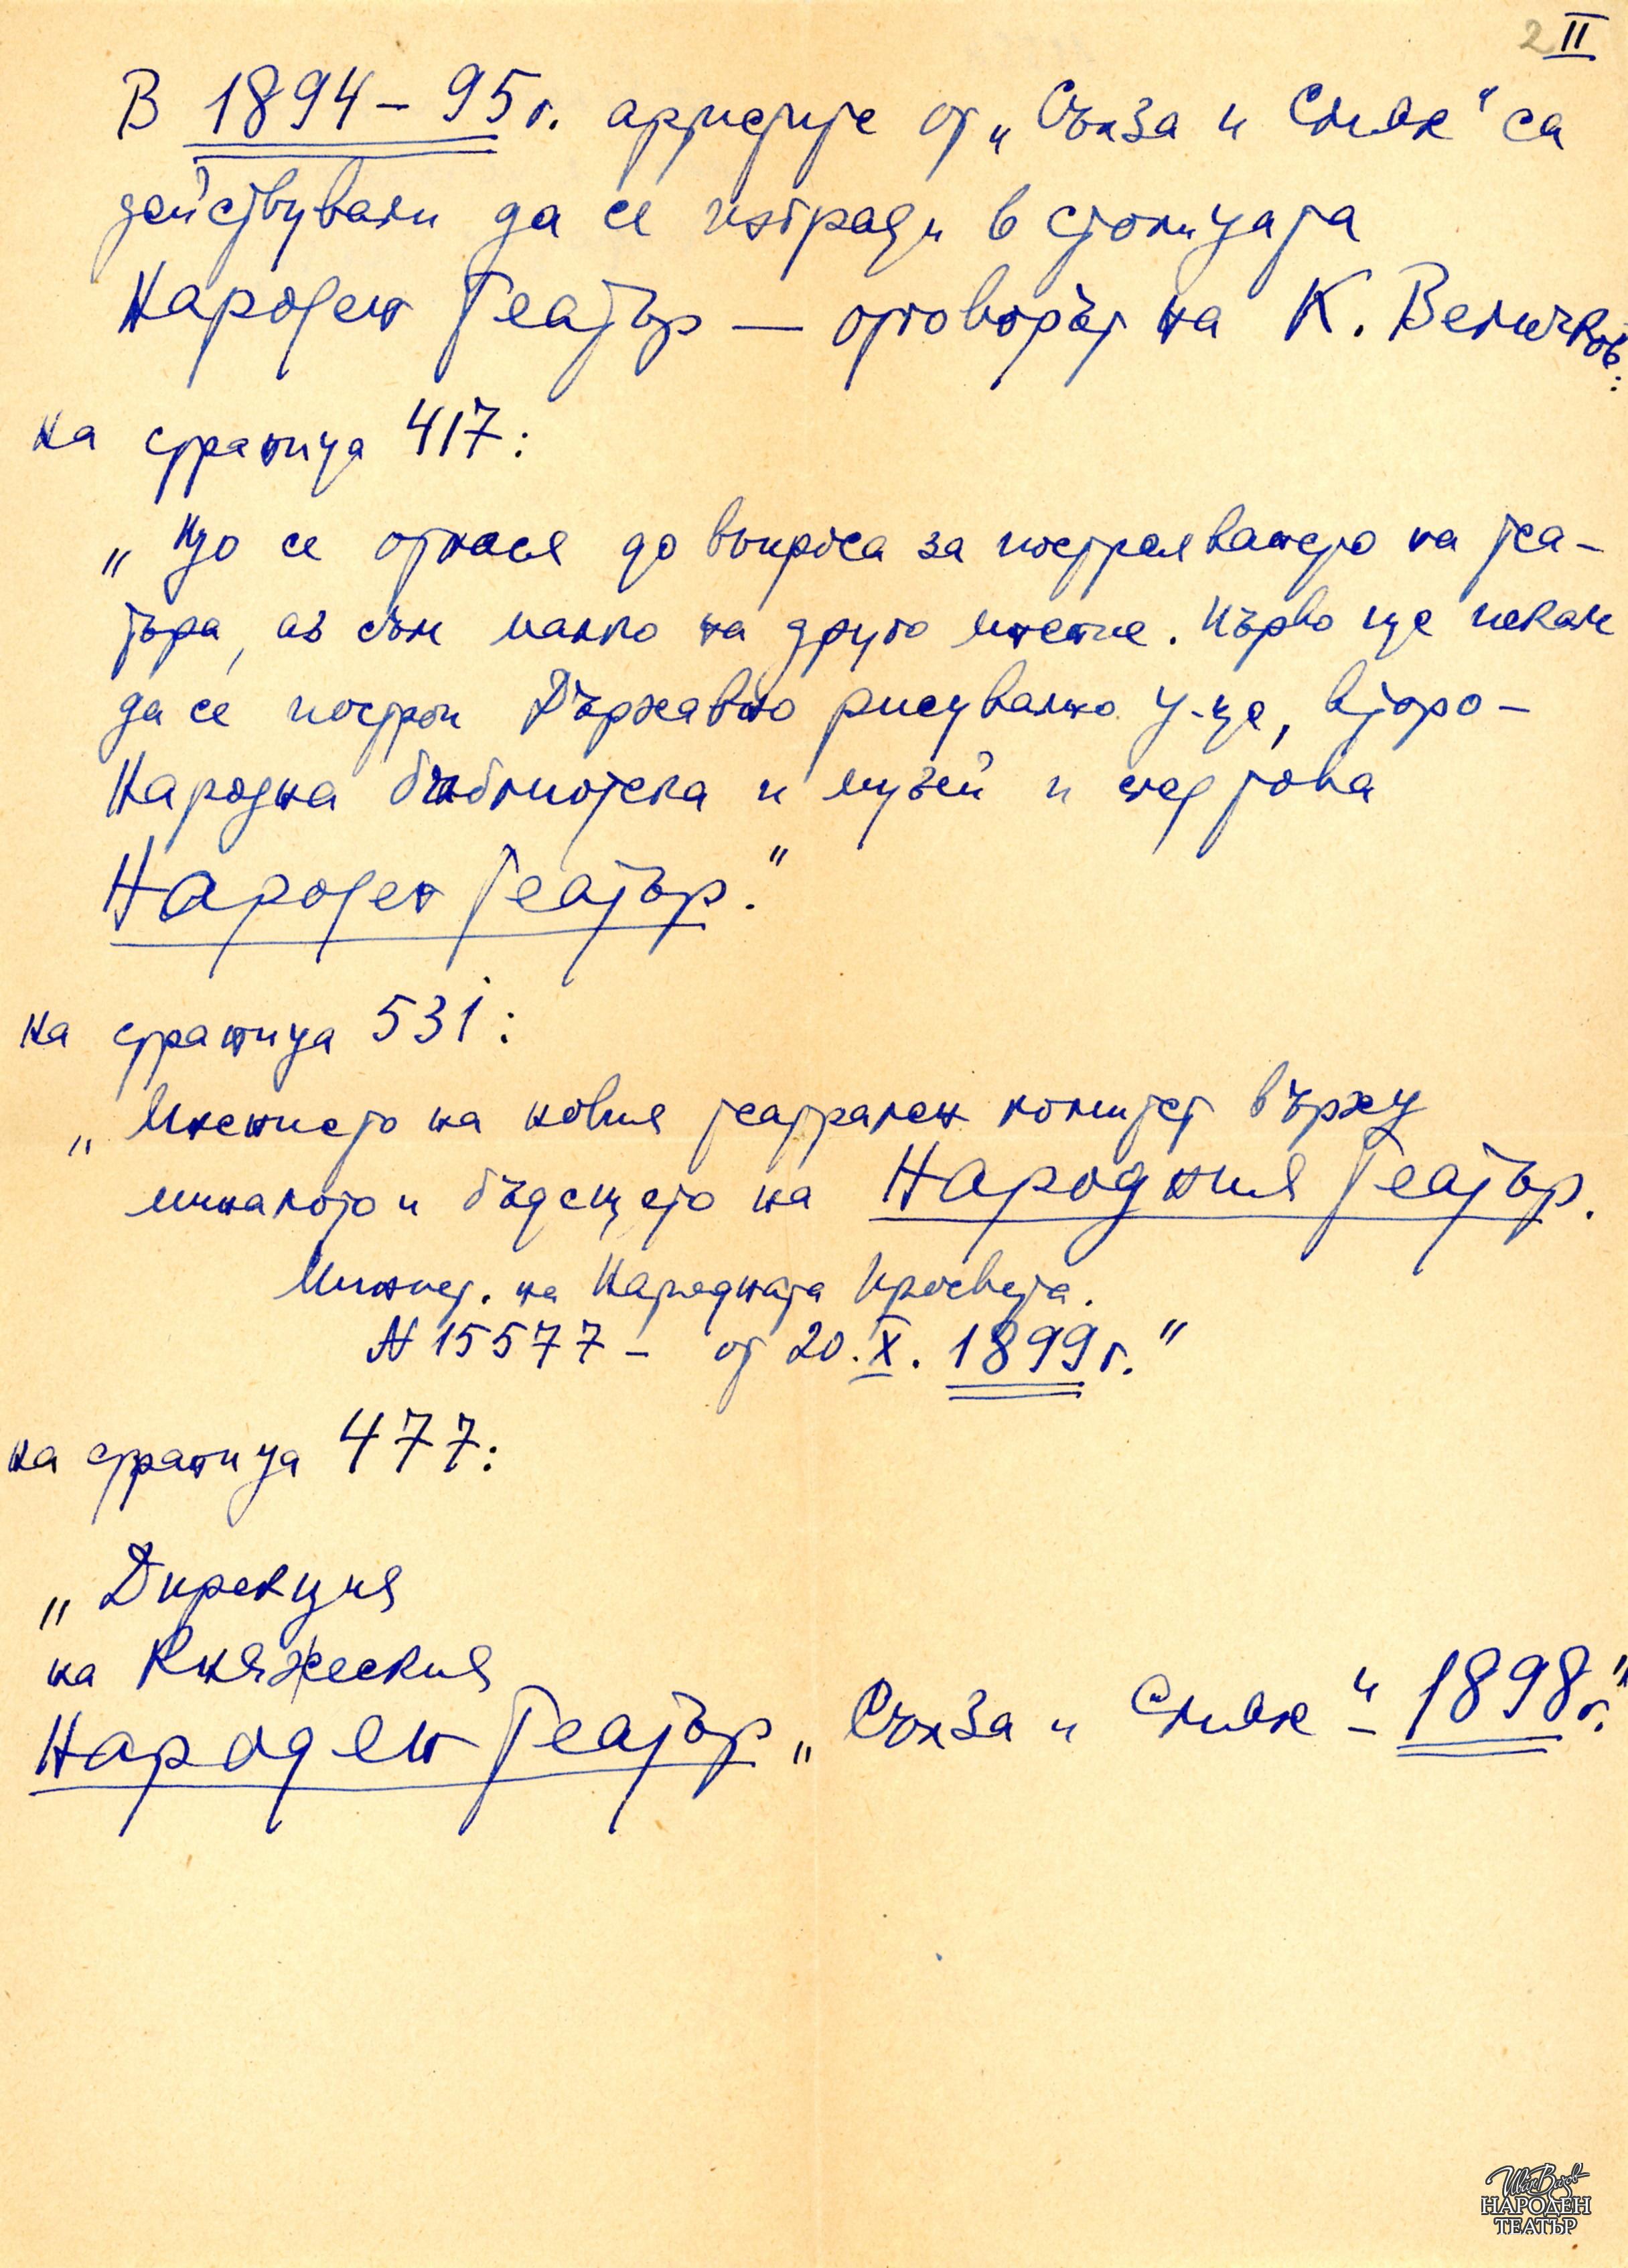 2 II
В 1894 – 95 г. артистите от „Сълза и Смях“ са
действували да се изгради в столицата
Народен Театър — отговорът на К. Величков:
на страница 417:
„Що се отнася до въпроса за построяването на теа-
търа, аз съм малко на друго мнение. Първо ще искам
да се построи Държавно рисувално у-ще, второ –
Народна библиотека и музей и след това
Народен Театър.“
на страница 531:
„Мнението на новия театрален комитет върху
миналото и бъдещето на Народния Театър.
Минист. на Народната Просвета.
N 15577 – от 20.X.1899 г.“
на страница 477:
„Дирекция
на Княжеския
Народен Театър „Сълза и Смях“ – 1898 г.“
Иван Вазов
НАРОДЕН
ТЕАТЪР